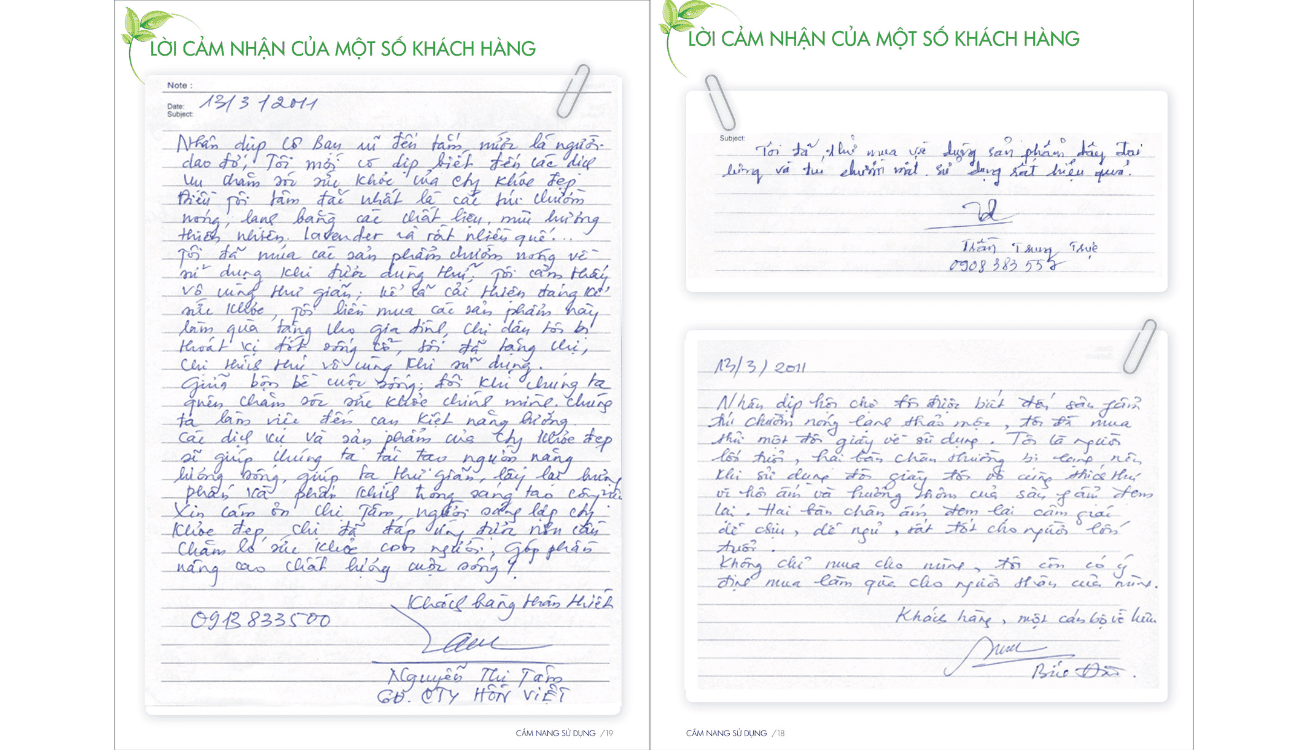 LỜI CẢM NHẬN CỦA MỘT SỐ KHÁCH HÀNG
Note :
Date: 13/3/2011
Subject:
Nhân dịp cô bạn đến tắm, mới là người
Tôi mới có dịp biết đến các dịch
vụ chăm sóc sức khỏe của Cty Khỏe đẹp
Điều tôi tâm đắc nhất là các túi chườm
nóng, lạnh bằng các chất liệu, mùi hương
thiên nhiên. lavender và rất nhiều quế...
Tôi đã mua các sản phẩm chườm nóng về
sử dụng khi được dùng thử, tôi cảm thấy
vô cùng thư giãn, cải thiện đáng kể
sức khỏe, tôi liền mua các sản phẩm này
làm quà tặng cho gia đình, chị dâu tôi bị
thoát vị đốt sống cổ, tôi đã tặng chị,
chị thích thú vô cùng khi sử dụng.
Giữa bộn bề cuộc sống, đôi khi chúng ta
quên chăm sóc sức khỏe chính mình. chúng
ta làm việc đến cạn kiệt năng lượng.
Các dịch vụ và sản phẩm của Cty Khỏe đẹp
sẽ giúp chúng ta tái tạo nguồn năng
lượng sống, giúp ta thư giãn, lấy lại hưng
phấn và phấn khích trong sáng tạo công việc
Xin cám ơn chị Tâm, người sáng lập cty
Khỏe đẹp, chị đã đáp ứng được nhu cầu
chăm lo sức khỏe con người, góp phần
nâng cao chất lượng cuộc sống!
Khách hàng thân thiết
0913833500
Nguyễn Thị Tám
GĐ. CTY HỒN VIỆT
CẨM NANG SỬ DỤNG /19
LỜI CẢM NHẬN CỦA MỘT SỐ KHÁCH HÀNG
Subject:
Tôi đã thử mua về dụng sản phẩm dây đai
lưng và túi chườm mắt. sử dụng rất hiệu quả.
Trần Trung Trực
0908 383 557
13/3/2011
Nhân dịp hội chợ tôi được biết đến sản phẩm
túi chườm nóng lạnh thảo mộc, tôi đã mua
thử một đôi giày về sử dụng. Tôi là người
lớn tuổi, hai bàn chân thường bị lạnh nên
khi sử dụng đôi giày tôi vô cùng thích thú
vì hơi ấm và hương thơm của sản phẩm đem
lại. Hai bàn chân ấm đem lại cảm giác
dễ chịu, dễ ngủ, rất tốt cho người lớn
tuổi.
Không chỉ mua cho mình, tôi còn có ý
định mua làm quà cho người thân của mình.
Khách hàng, một cán bộ về hưu
CẨM NANG SỬ DỤNG /18